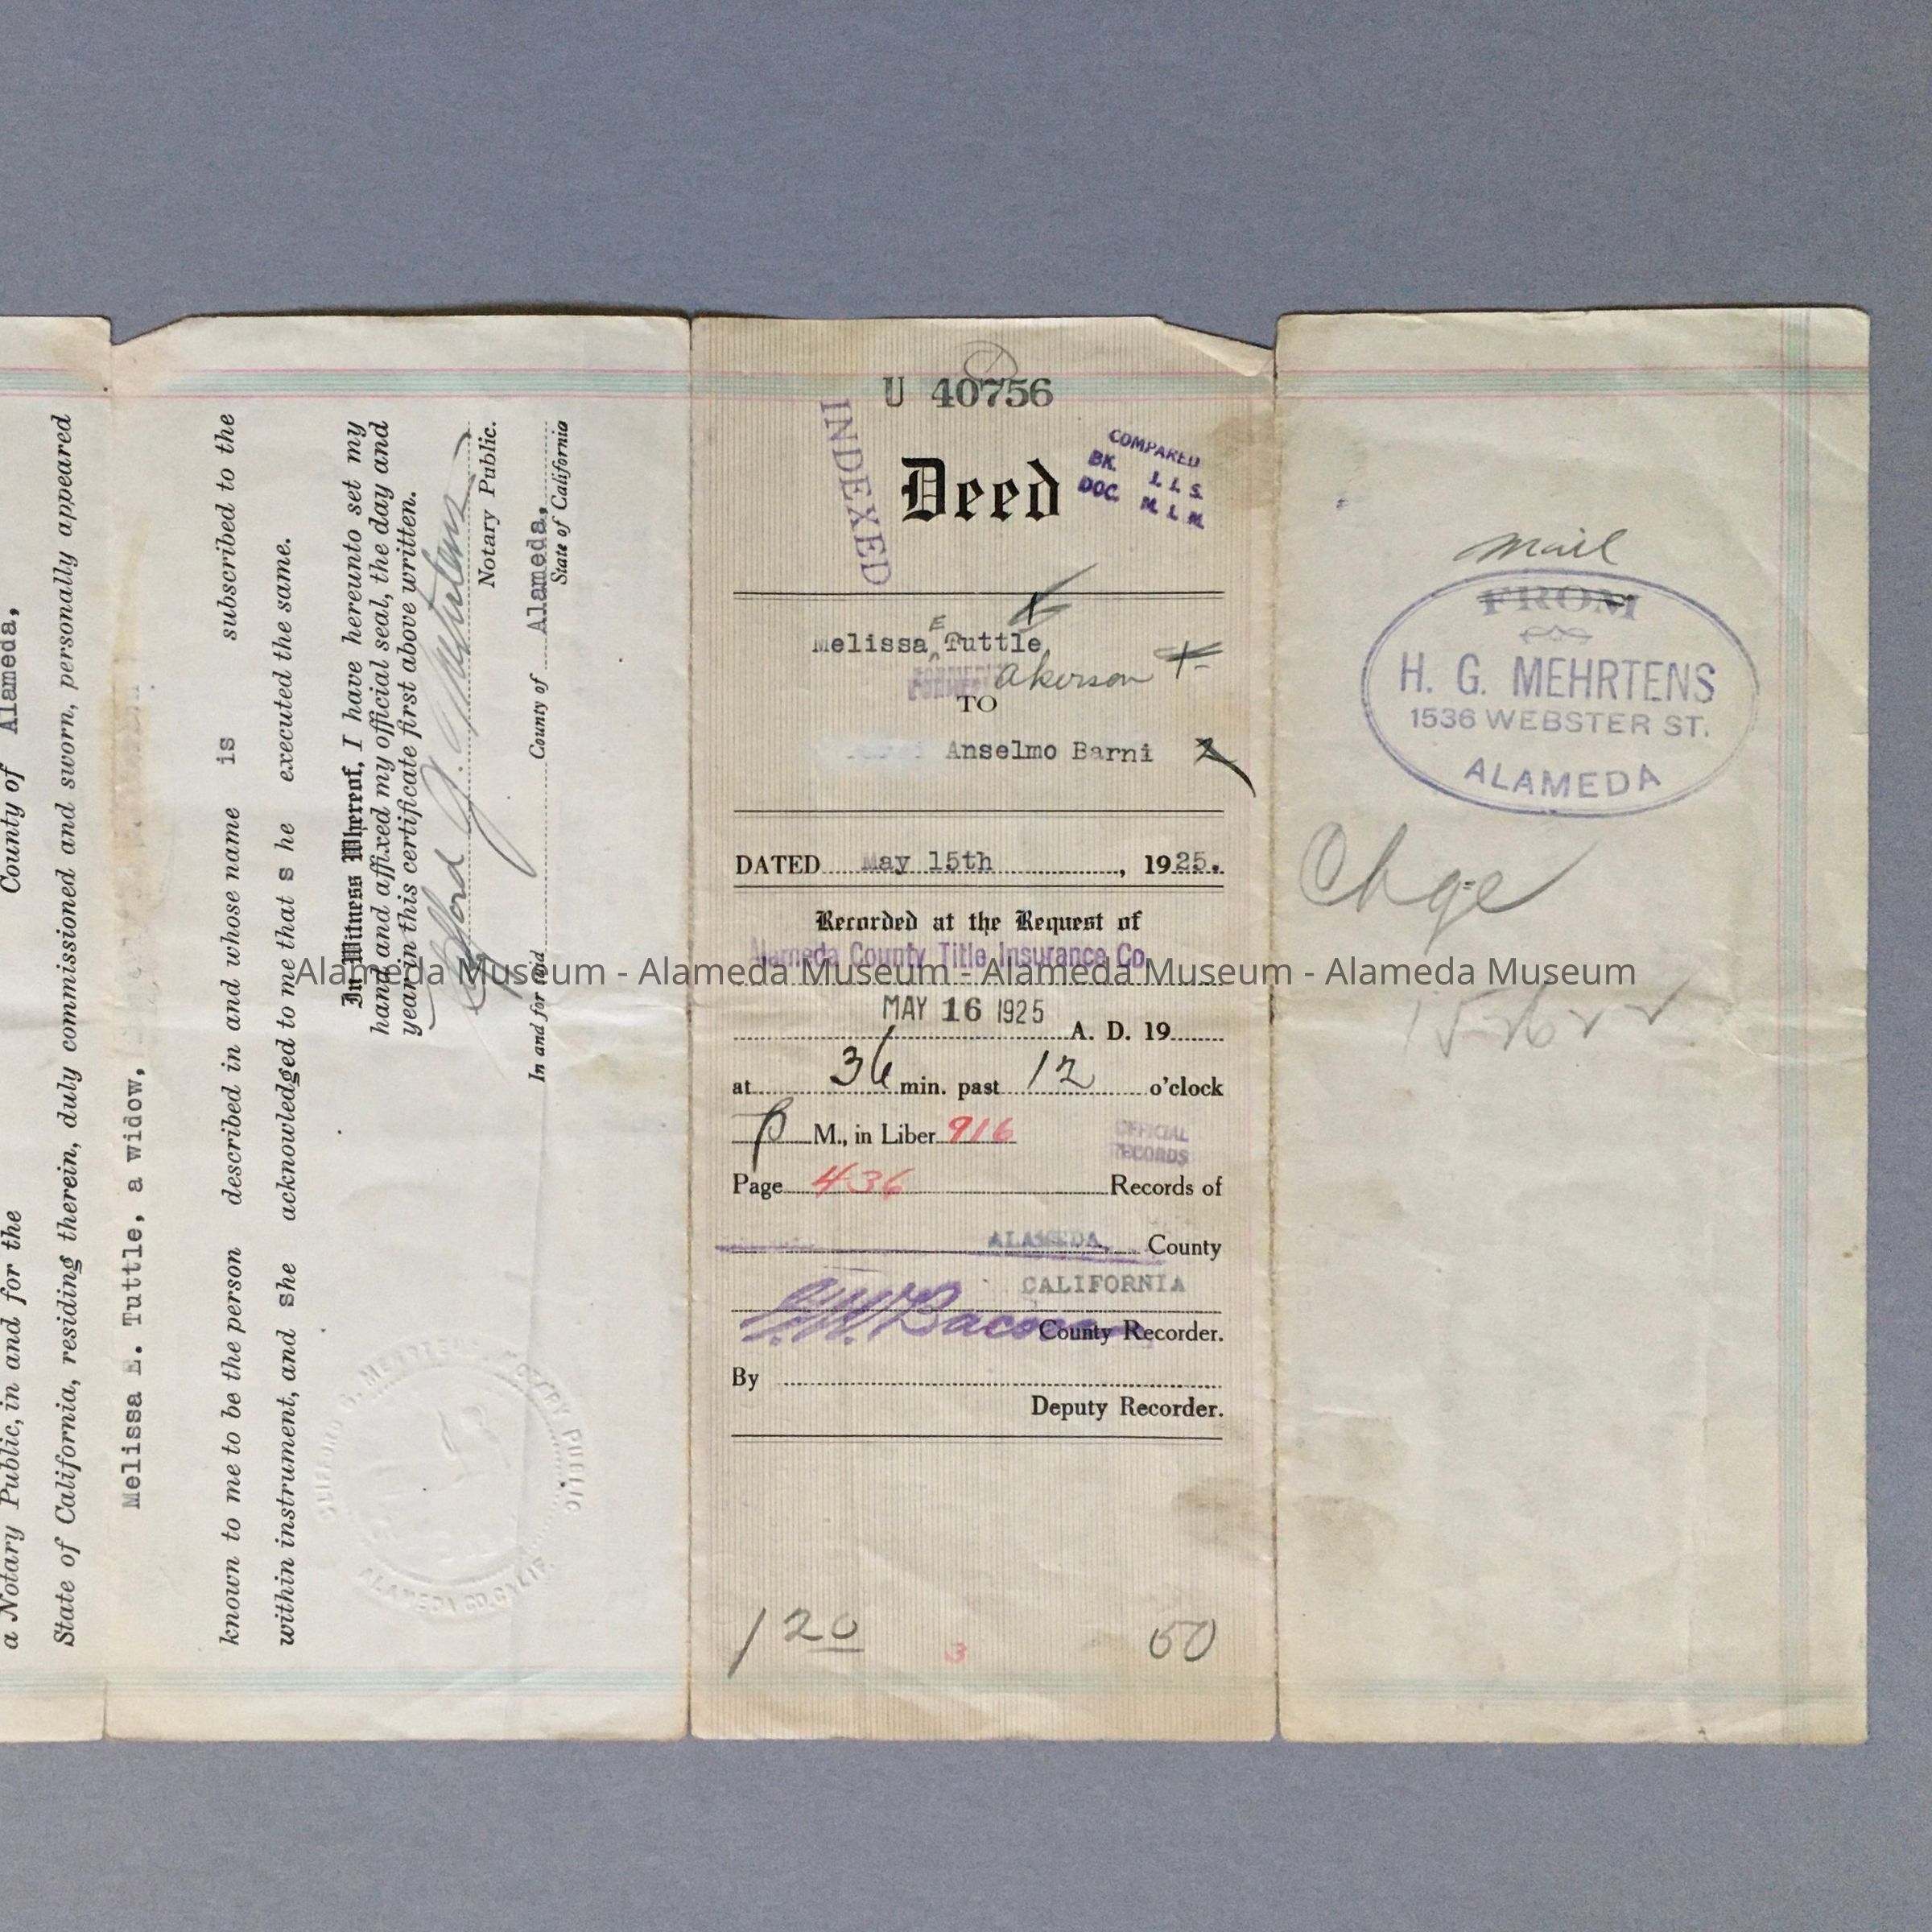 a Notary Public, in and for the County of Alameda,
State of California, residing therein, duly commissioned and sworn, personally appeared
Melissa E. Tuttle, a widow,
known to me to be the person described in and whose name is subscribed to the
within instrument, and she acknowledged to me that s he executed the same.
In Witness Whereof, I have hereunto set my
hand and affixed my official seal, the day and
year in this certificate first above written.
Clifford G. Mehrtens
Notary Public.
In and for said County of Alameda,
State of California
CLIFFORD G. MEHRTENS, NOTARY PUBLIC
ALAMEDA CO. CALIF.
U 40756
INDEXED
Deed
COMPARED
BK. I. I. S.
DOC. M. L. M.
E
Melissa Tuttle
FORMERLY Akerson
TO
Anselmo Barni
DATED May 15th , 1925.
Recorded at the Request of
Alameda County Title Insurance Co.
MAY 16 1925
A. D. 19
at 36 min. past 12 o'clock
P M., in Liber 916
OFFICIAL
RECORDS
Page 436 Records of
ALAMEDA, County
CALIFORNIA
G. W. Bacon County Recorder.
By
Deputy Recorder.
1 20 3 50
mail
FROM
H. G. MEHRTENS
1536 WEBSTER ST.
ALAMEDA
Chge
Alameda Museum - Alameda Museum - Alameda Museum - Alameda Museum